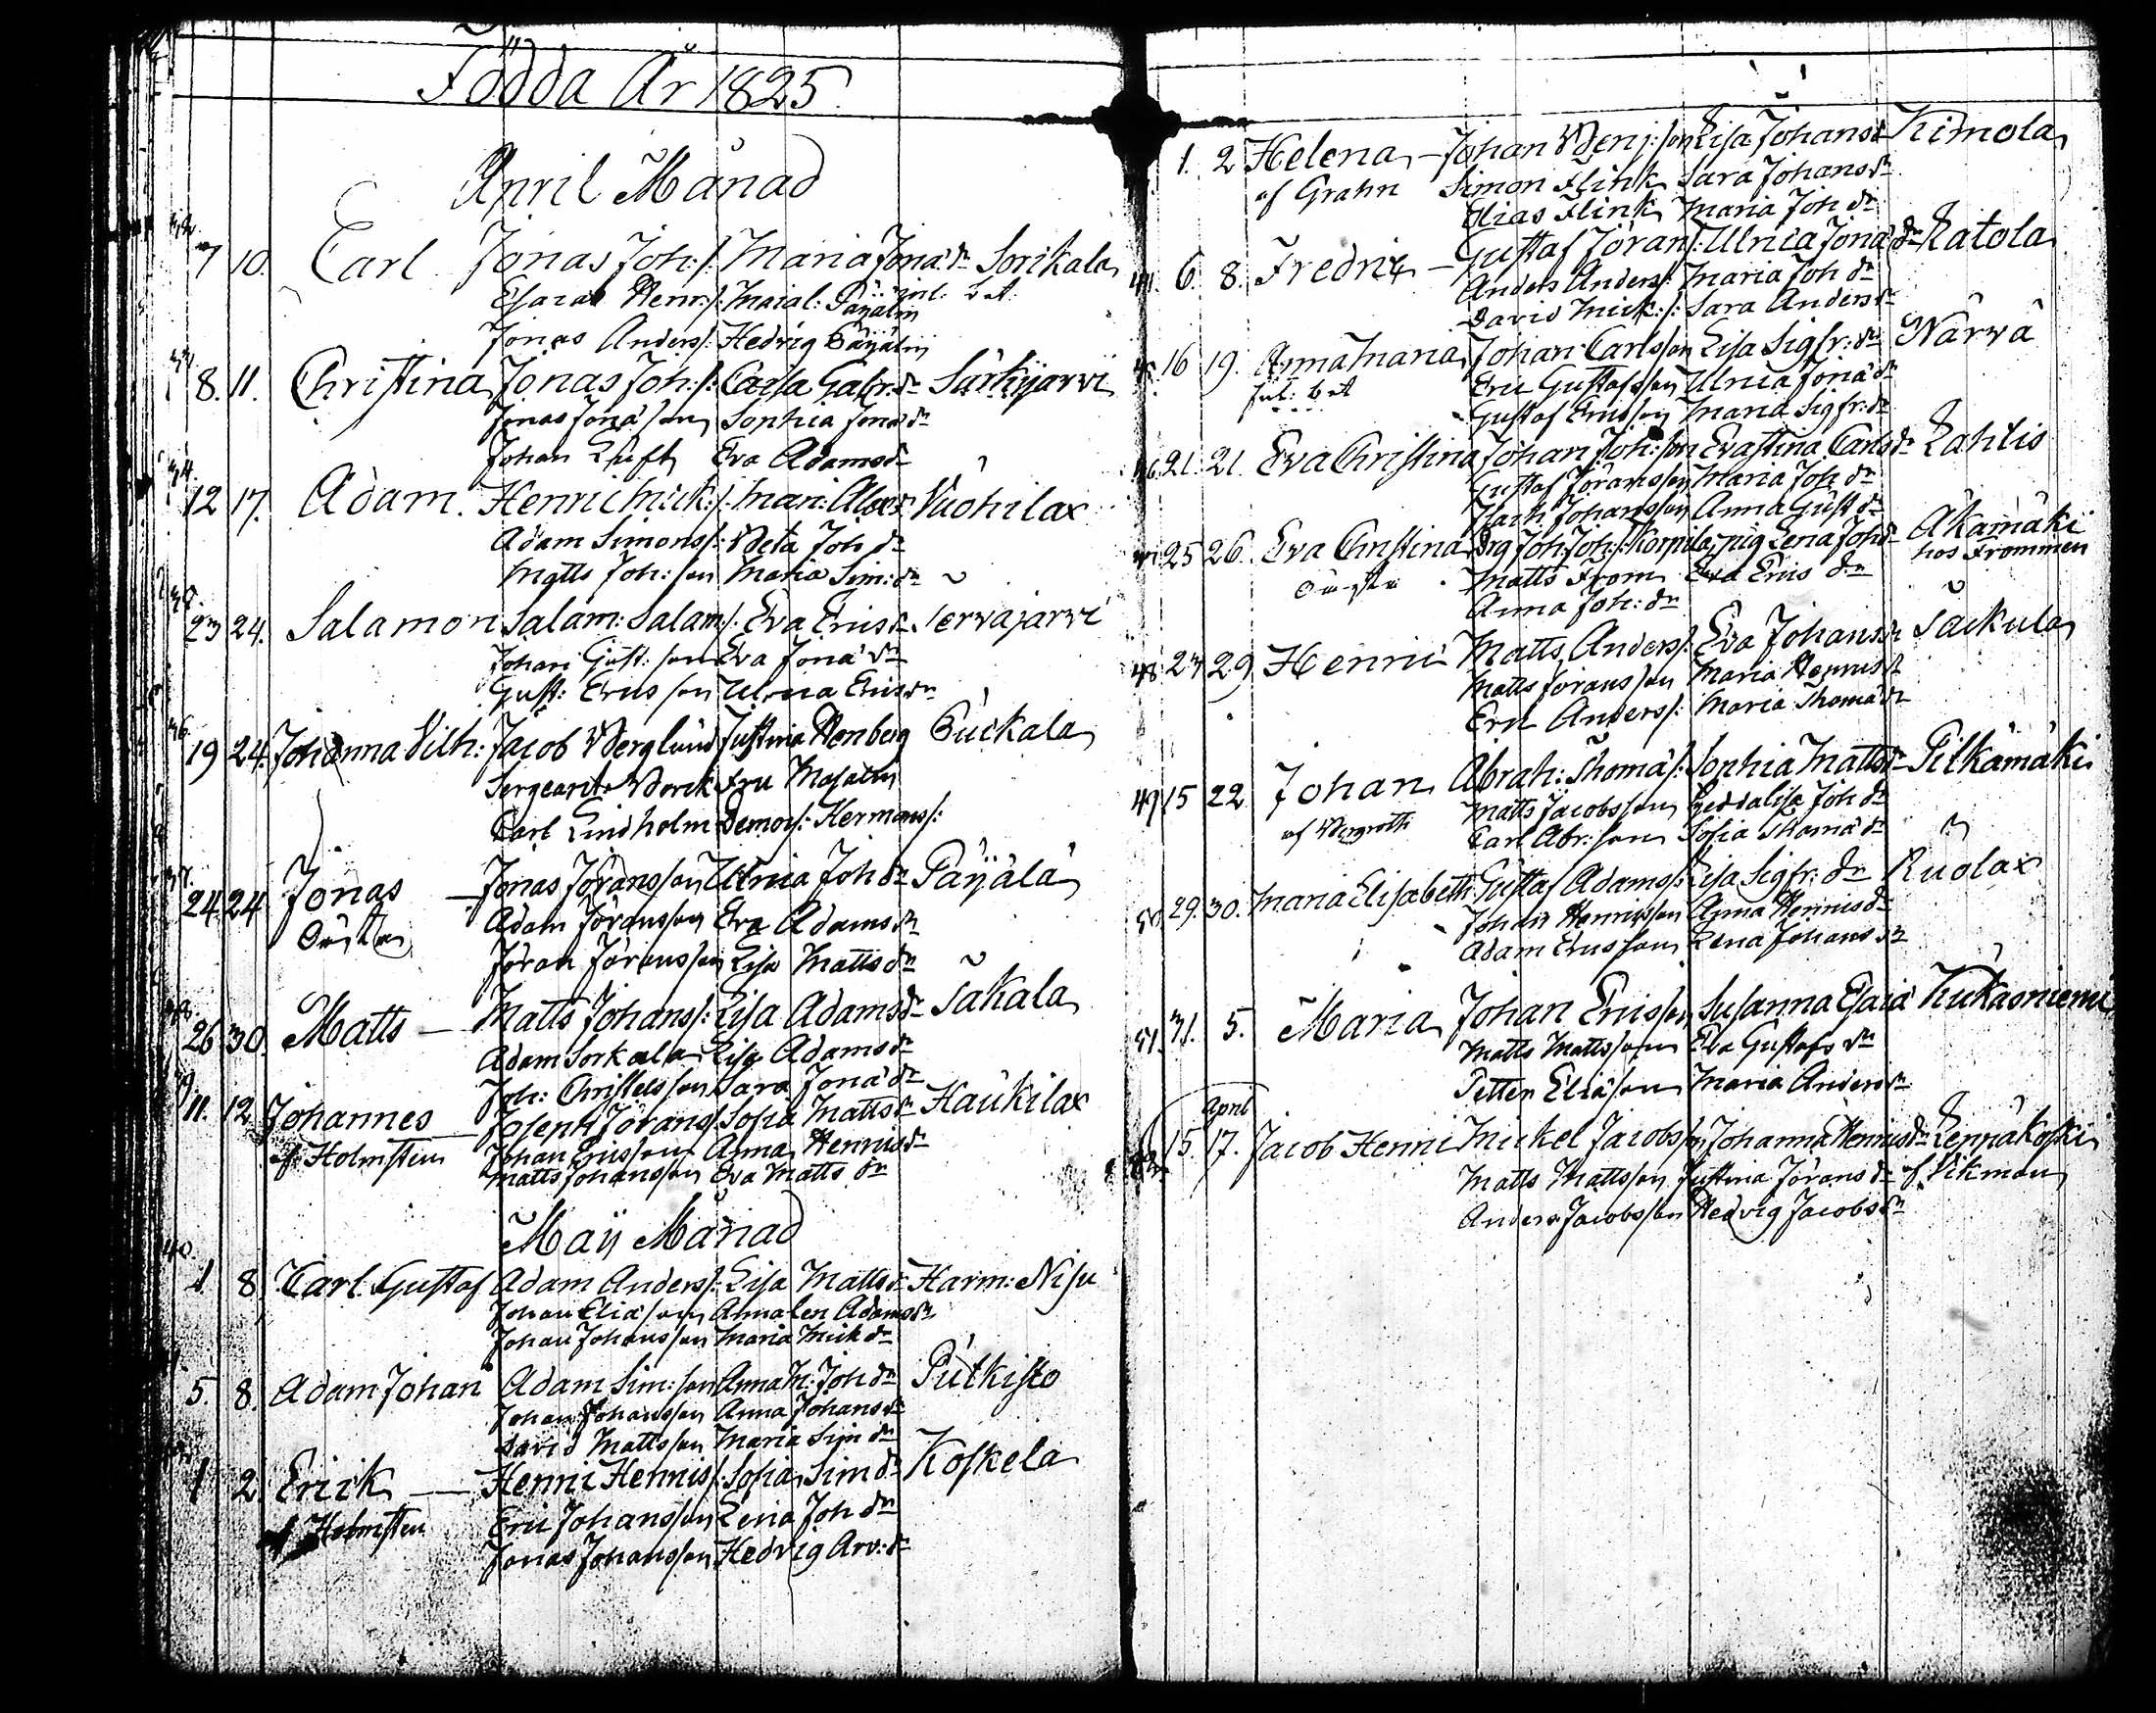 Födda År 1825.
April Månad
32.
7 10. Carl Jonas Joh:s: Maria Jona dr Sorikala
Esaias Henr:s: Maja l: Päyälin
Jonas Anders: Hedvig Päyälin
33.
8. 11. Christina Jonas Joh:s: Caisa Gabr: dr Särkjarvi
Jonas Jona'son Sophia Jona dr
Johan Luft Eva Adamsdr
34.
12 17. Adam. Henric Mick:s: Mari: Alex dr Vuohilax
Adam Simons: Beta Joh dr
Matts Joh:son Maria Sim: dr
23 24. Salamon Salam: Salam:s. Eva Erics dr
Johan Gust: son Eva Jona' dr
Gust: Erics son Ulrica Erics dr
36.
19 24. Johanna Vilh: Jacob Berglund Justina Stenberg Cuckala
Sergeant Borck Fru Masalin
Carl Lindholm Demois: Hermans:
37.
24. 24 Jonas — Jonas Jöransson Ulrica Joh dr Päyälä
Oäkta Adam Jöransson Eva Adams dr
Jöran Jöransson Lisa Matts dr
38.
26 30. Matts — Matts Johans: Lisa Adams dr Säkala
Adam Sorkala Lisa Adams dr
Joh: Christersson Sara Jona' dr
39.
11. 12 Johannes Joseph Jörans: Sofia Matts dr Haukilax
af Holmsten Johan Ericsson Anna Henrics dr
Matts Johansson Eva Matts dr
Maij Månad
40.
1 8 Carl Gustaf Adam Anders: Lisa Matts dr Harm: Nisu
Johan Elia'son Annalen Adams dr
Johan Johansson Maria Mick dr
5. 8. Adam Johan Adam Sim: son Anna M: Joh dr Putkisto
Johan Johansson Anna Johans dr
David Mattsson Maria Sim dr
1 2. Erick — Henric Henrics: Sofia Sim dr Koskela
af Holmsten Eric Johansson Lena Joh dr
Jonas Johansson Hedvig Arv: dr
1. 2 Helena — Johan Benj:son Lisa Johans dr Kimola
af Grahn Simon Flink Sara Johans dr
Elias Flink Maria Joh dr
44. 6. 8. Fredric — Gustaf Jörans: Ulrica Jona' dr Ratola
Anders Anders: Maria Joh dr
David Mick:s: Sara Anders dr
16 19. Anna Maria Johan Carlsson Lisa Sigfr: dr Närvä
Eric Gustafsson Ulrica Jona' dr
Gustaf Ericsson Maria Sigfr: dr
46. 21. 21. Eva Christina Johan Joh:son Evastina Carls dr Lahtis
Gustaf Jöransson Maria Joh dr
Johansson Anna Gust dr
25 26. Eva Christina Drg Joh: Joh:s: Korpila, pig Lena Joh dr Äkamäki
Oäkta Matts From Eva Erics dr hos Frommen
Anna Joh: dr
48 27 29 Henric Matts Anders: Eva Johans dr Säckula
Matts Joransson Maria Henrics dr
Eric Anders: Maria Thoma' dr
49 15 22 Johan Abrah: Thoma's: Sophia Matts dr Pilkämäki
af Bergroth Matts Jacobsson Heddalisa Joh dr
Carl Abr: son Sofia Thoma' dr
50 29. 30. Maria Elisabeth Gustaf Adams: Lisa Sigfr: dr Ruolax
Johan Henricsson Anna Henrics dr
Adam Ericsson Lena Johans dr
51. 31. 5. Maria Johan Ericsson Susanna Esaia' Kukasniemi
Matts Mattsson Eva Gustafs dr
Petter Elia'son Maria Anders dr
April
15. 17. Jacob Henric Mickel Jacobsson Johanna Henrics dr Lennäkoski
Matts Mattsson Justina Jörans dr af Vikman
Anders Jacobsson Hedvig Jacobs dr